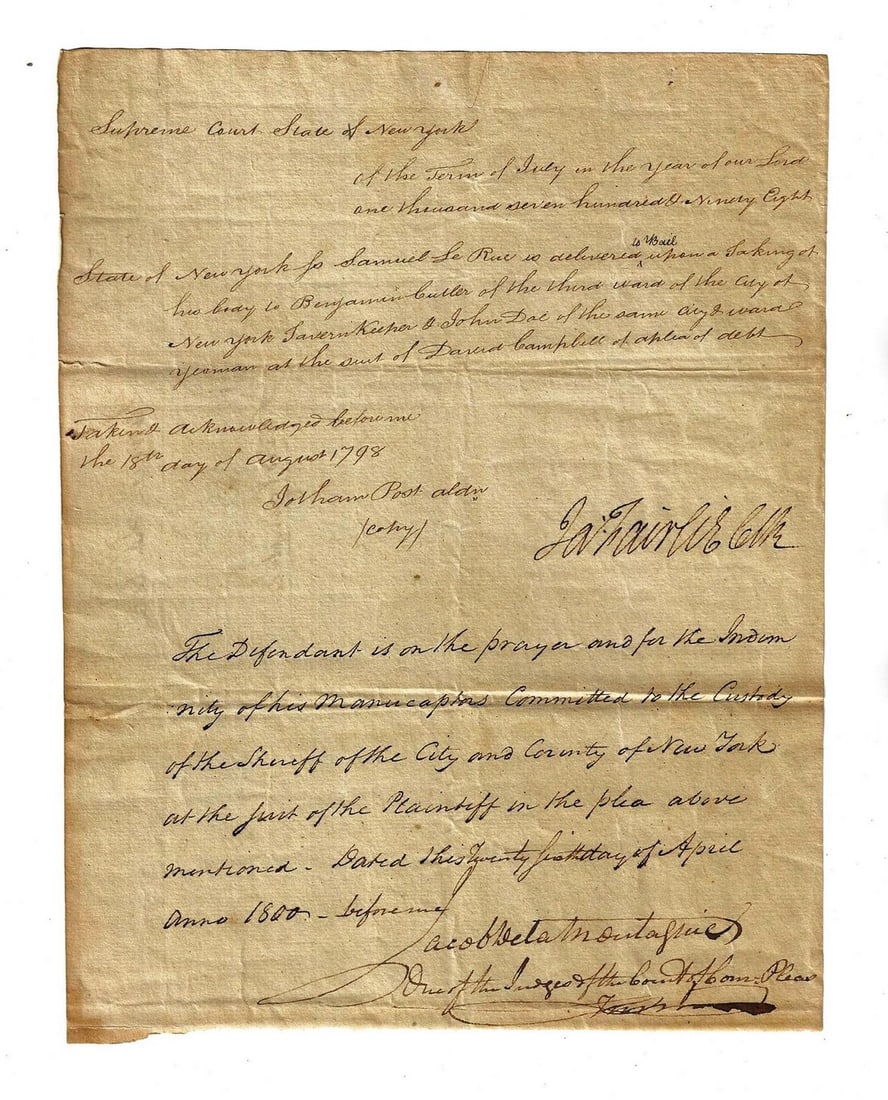 Supreme Court State of New York
of the Term of July in the Year of our Lord
one thousand seven hundred & Ninety Eight
to Bail
State of New York ss Samuel Le Rue is delivered ^ upon a Taking of
his body to Benjamin Cutler of the third ward of the City of
New York Tavern Keeper & John Doe of the same City & ward
yeoman at the suit of David Campbell of a plea of debt
Taken & acknowledged before me
the 18th day of August 1798
Jotham Post aldn
(copy)
Ja: Fairlie Clk
The Defendant is on the prayer and for the Indem
nity of his Manucaptors Committed to the Custody
of the Sheriff of the City and County of New York
at the suit of the Plaintiff in the plea above
mentioned - Dated this Twenty sixth day of April
Anno 1800 - before me
Jacob Delamontagnie
One of the Judges of the Court of Com: Pleas